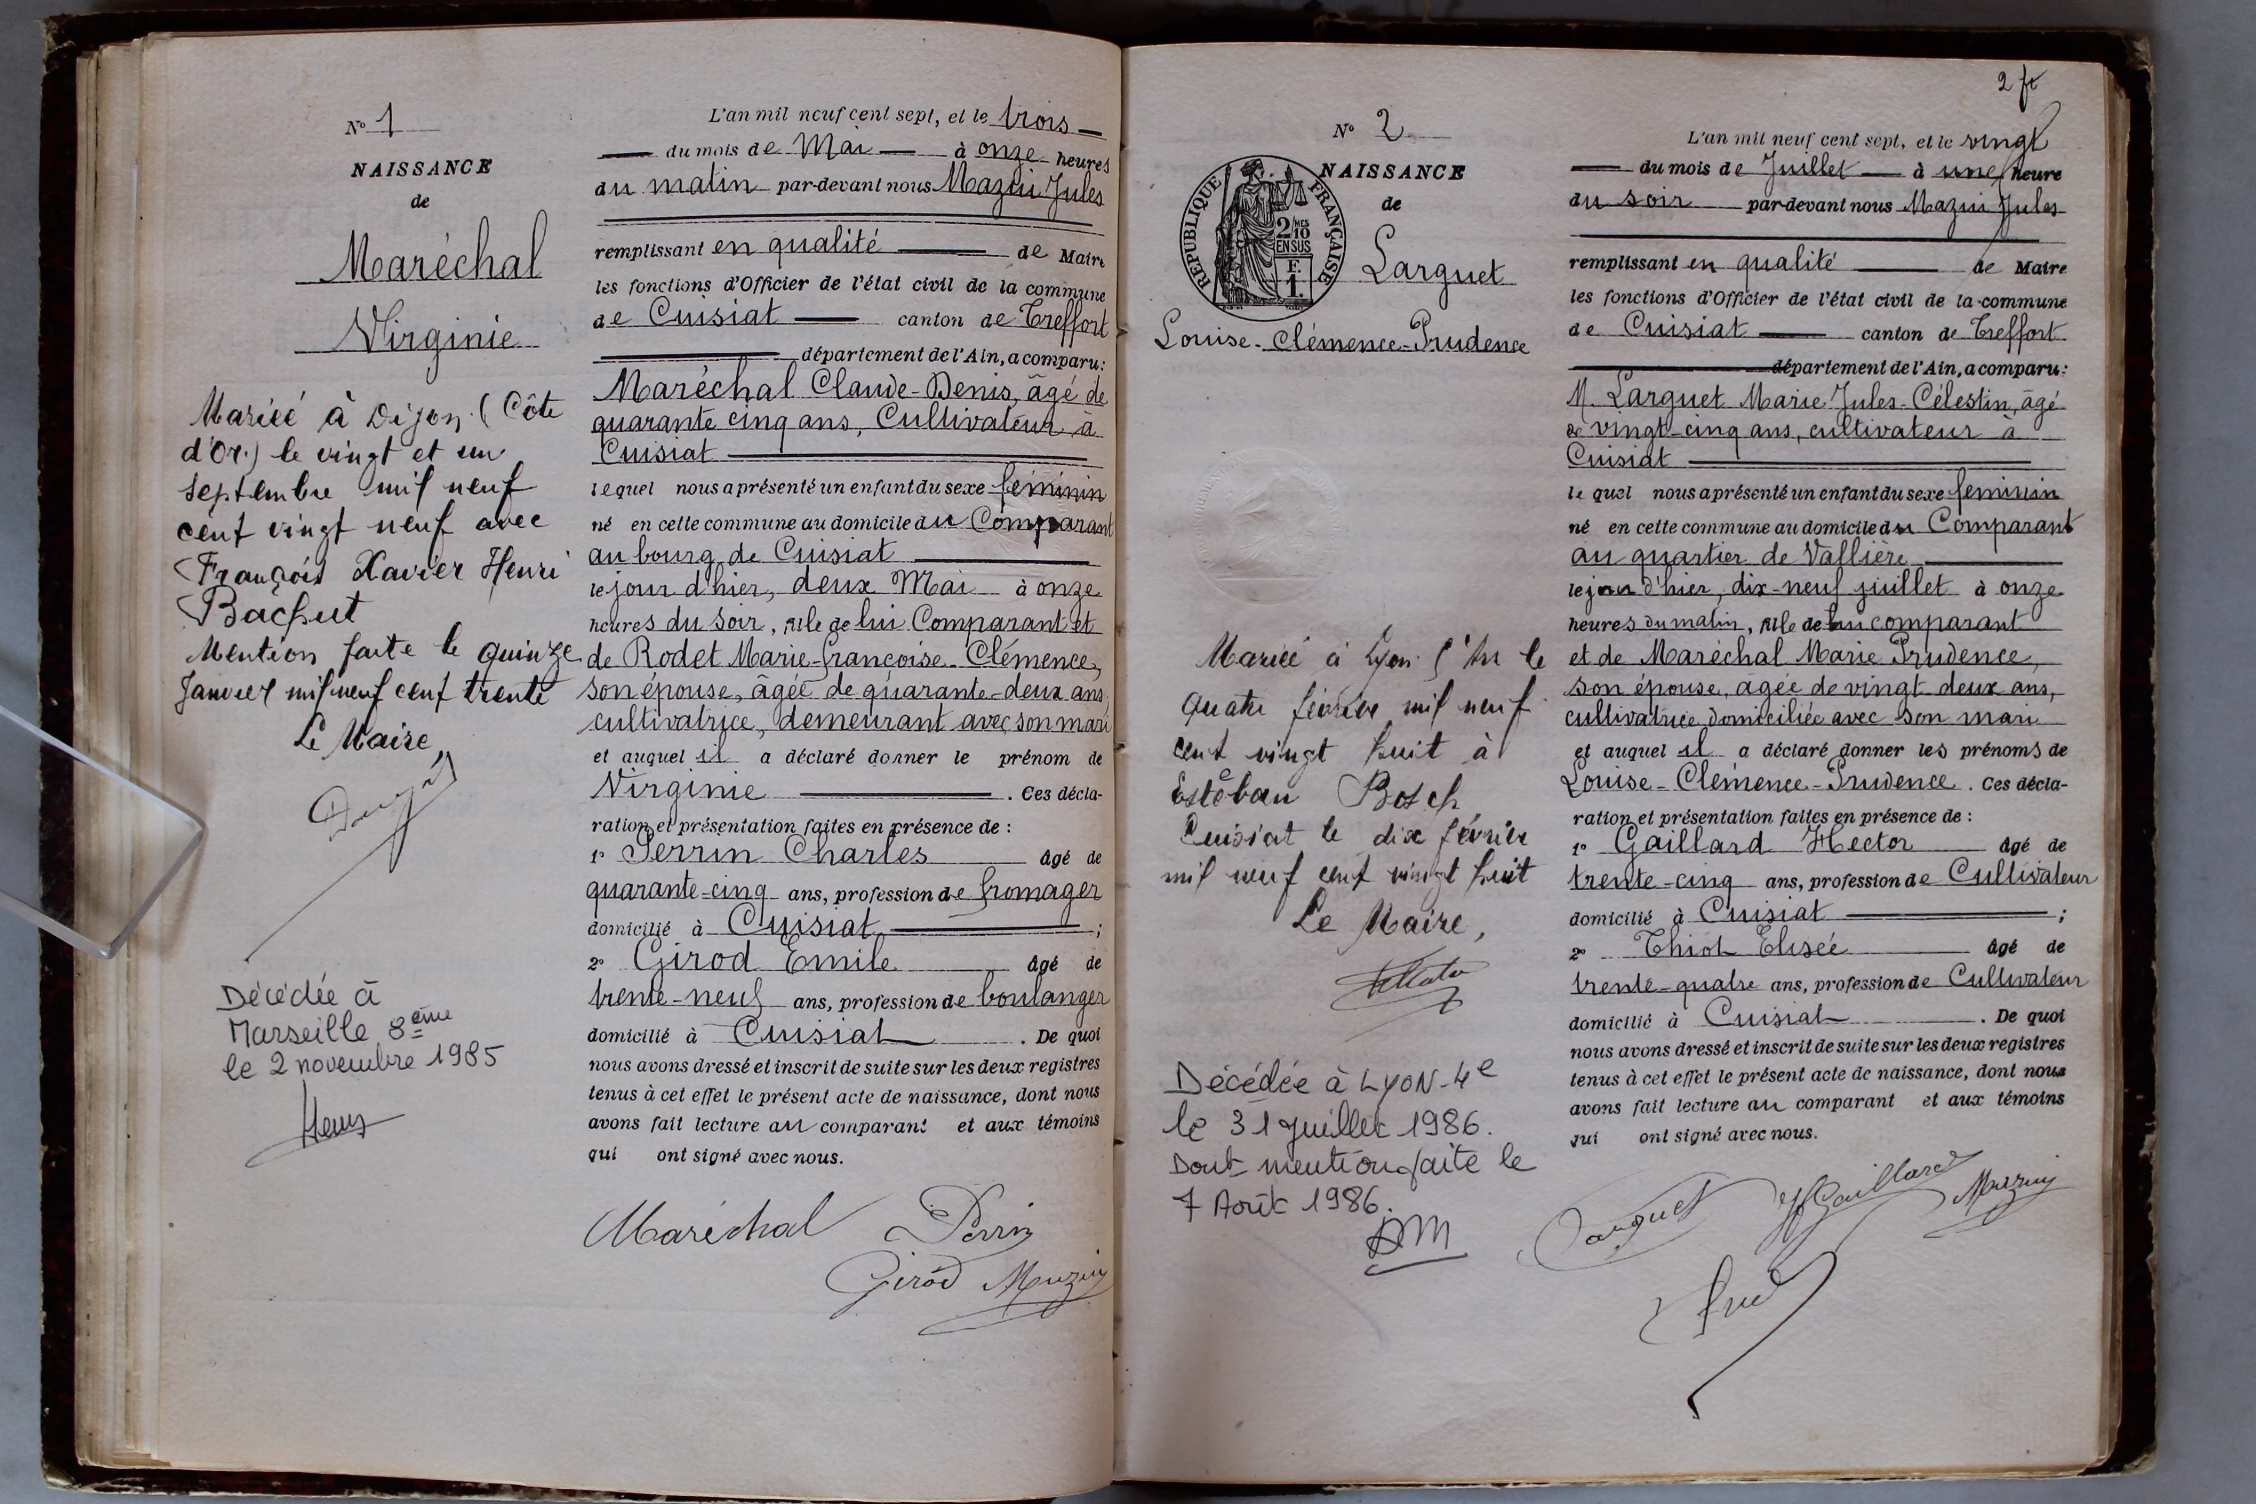 Nº 1
NAISSANCE
de
Maréchal
Virginie
Mariée à Dijon (Côte
d'Or.) le vingt et un
septembre mil neuf
cent vingt neuf avec
François Xavier Henri
Bachut
Mention faite le quinze
Janvier mil neuf cent trente
Le Maire
Décédée à
Marseille 8ème
le 2 novembre 1985
L'an mil neuf cent sept, et le trois
du mois de Mai à onze heures
du matin par-devant nous Mazuir Jules
remplissant en qualité de Maire
les fonctions d'Officier de l'état civil de la commune
de Cuisiat canton de Treffort
département de l'Ain, a comparu:
Maréchal Claude-Denis, âgé de
quarante cinq ans, Cultivateur à
Cuisiat
lequel nous a présenté un enfant du sexe féminin
né en cette commune au domicile du Comparant
au bourg de Cuisiat
le jour d'hier, deux Mai à onze
heures du soir, fille de lui Comparant et
de Rodet Marie-françoise-Clémence,
son épouse, âgée de quarante-deux ans,
cultivatrice, demeurant avec son mari
et auquel il a déclaré donner le prénom de
Virginie . Ces décla-
ration et présentation faites en présence de :
1º Perrin Charles âgé de
quarante-cinq ans, profession de fromager
domicilié à Cuisiat ;
2º Girod Emile âgé de
trente-neuf ans, profession de boulanger
domicilié à Cuisiat . De quoi
nous avons dressé et inscrit de suite sur les deux registres
tenus à cet effet le présent acte de naissance, dont nous
avons fait lecture au comparant et aux témoins
qui ont signé avec nous.
Maréchal Perrin
Girod Mazuir
2 ft
Nº 2
NAISSANCE
de
RÉPUBLIQUE FRANÇAISE
2 MES
10
EN SUS
F.
1.
Larguet
Louise-Clémence-Prudence
Mariée à Lyon 5e Arr le
quatre février mil neuf
cent vingt huit à
Estèban Bosch
Cuisiat le dix février
mil neuf cent vingt huit
Le Maire,
Décédée à LYON-4e
le 31 juillet 1986.
Dont mention faite le
7 Août 1986.
L'an mil neuf cent sept, et le vingt
du mois de Juillet à une heure
du soir par-devant nous Mazuir Jules
remplissant en qualité de Maire
les fonctions d'Officier de l'état civil de la commune
de Cuisiat canton de Treffort
département de l'Ain, a comparu:
M. Larguet Marie Jules-Célestin, âgé
de vingt-cinq ans, cultivateur à
Cuisiat
le quel nous a présenté un enfant du sexe feminin
né en cette commune au domicile du Comparant
au quartier de Vallière
le jour d'hier, dix-neuf juillet à onze
heures du matin, fille de lui comparant
et de Maréchal Marie Prudence,
son épouse, âgée de vingt deux ans,
cultivatrice domiciliée avec son mari
et auquel il a déclaré donner les prénoms de
Louise-Clémence-Prudence. Ces décla-
ration et présentation faites en présence de :
1º Gaillard Hector âgé de
trente-cinq ans, profession de Cultivateur
domicilié à Cuisiat ;
2º Thiot Elisée âgé de
trente-quatre ans, profession de Cultivateur
domicilié à Cuisiat . De quoi
nous avons dressé et inscrit de suite sur les deux registres
tenus à cet effet le présent acte de naissance, dont nous
avons fait lecture au comparant et aux témoins
qui ont signé avec nous.
Larguet HGaillard Mazuir